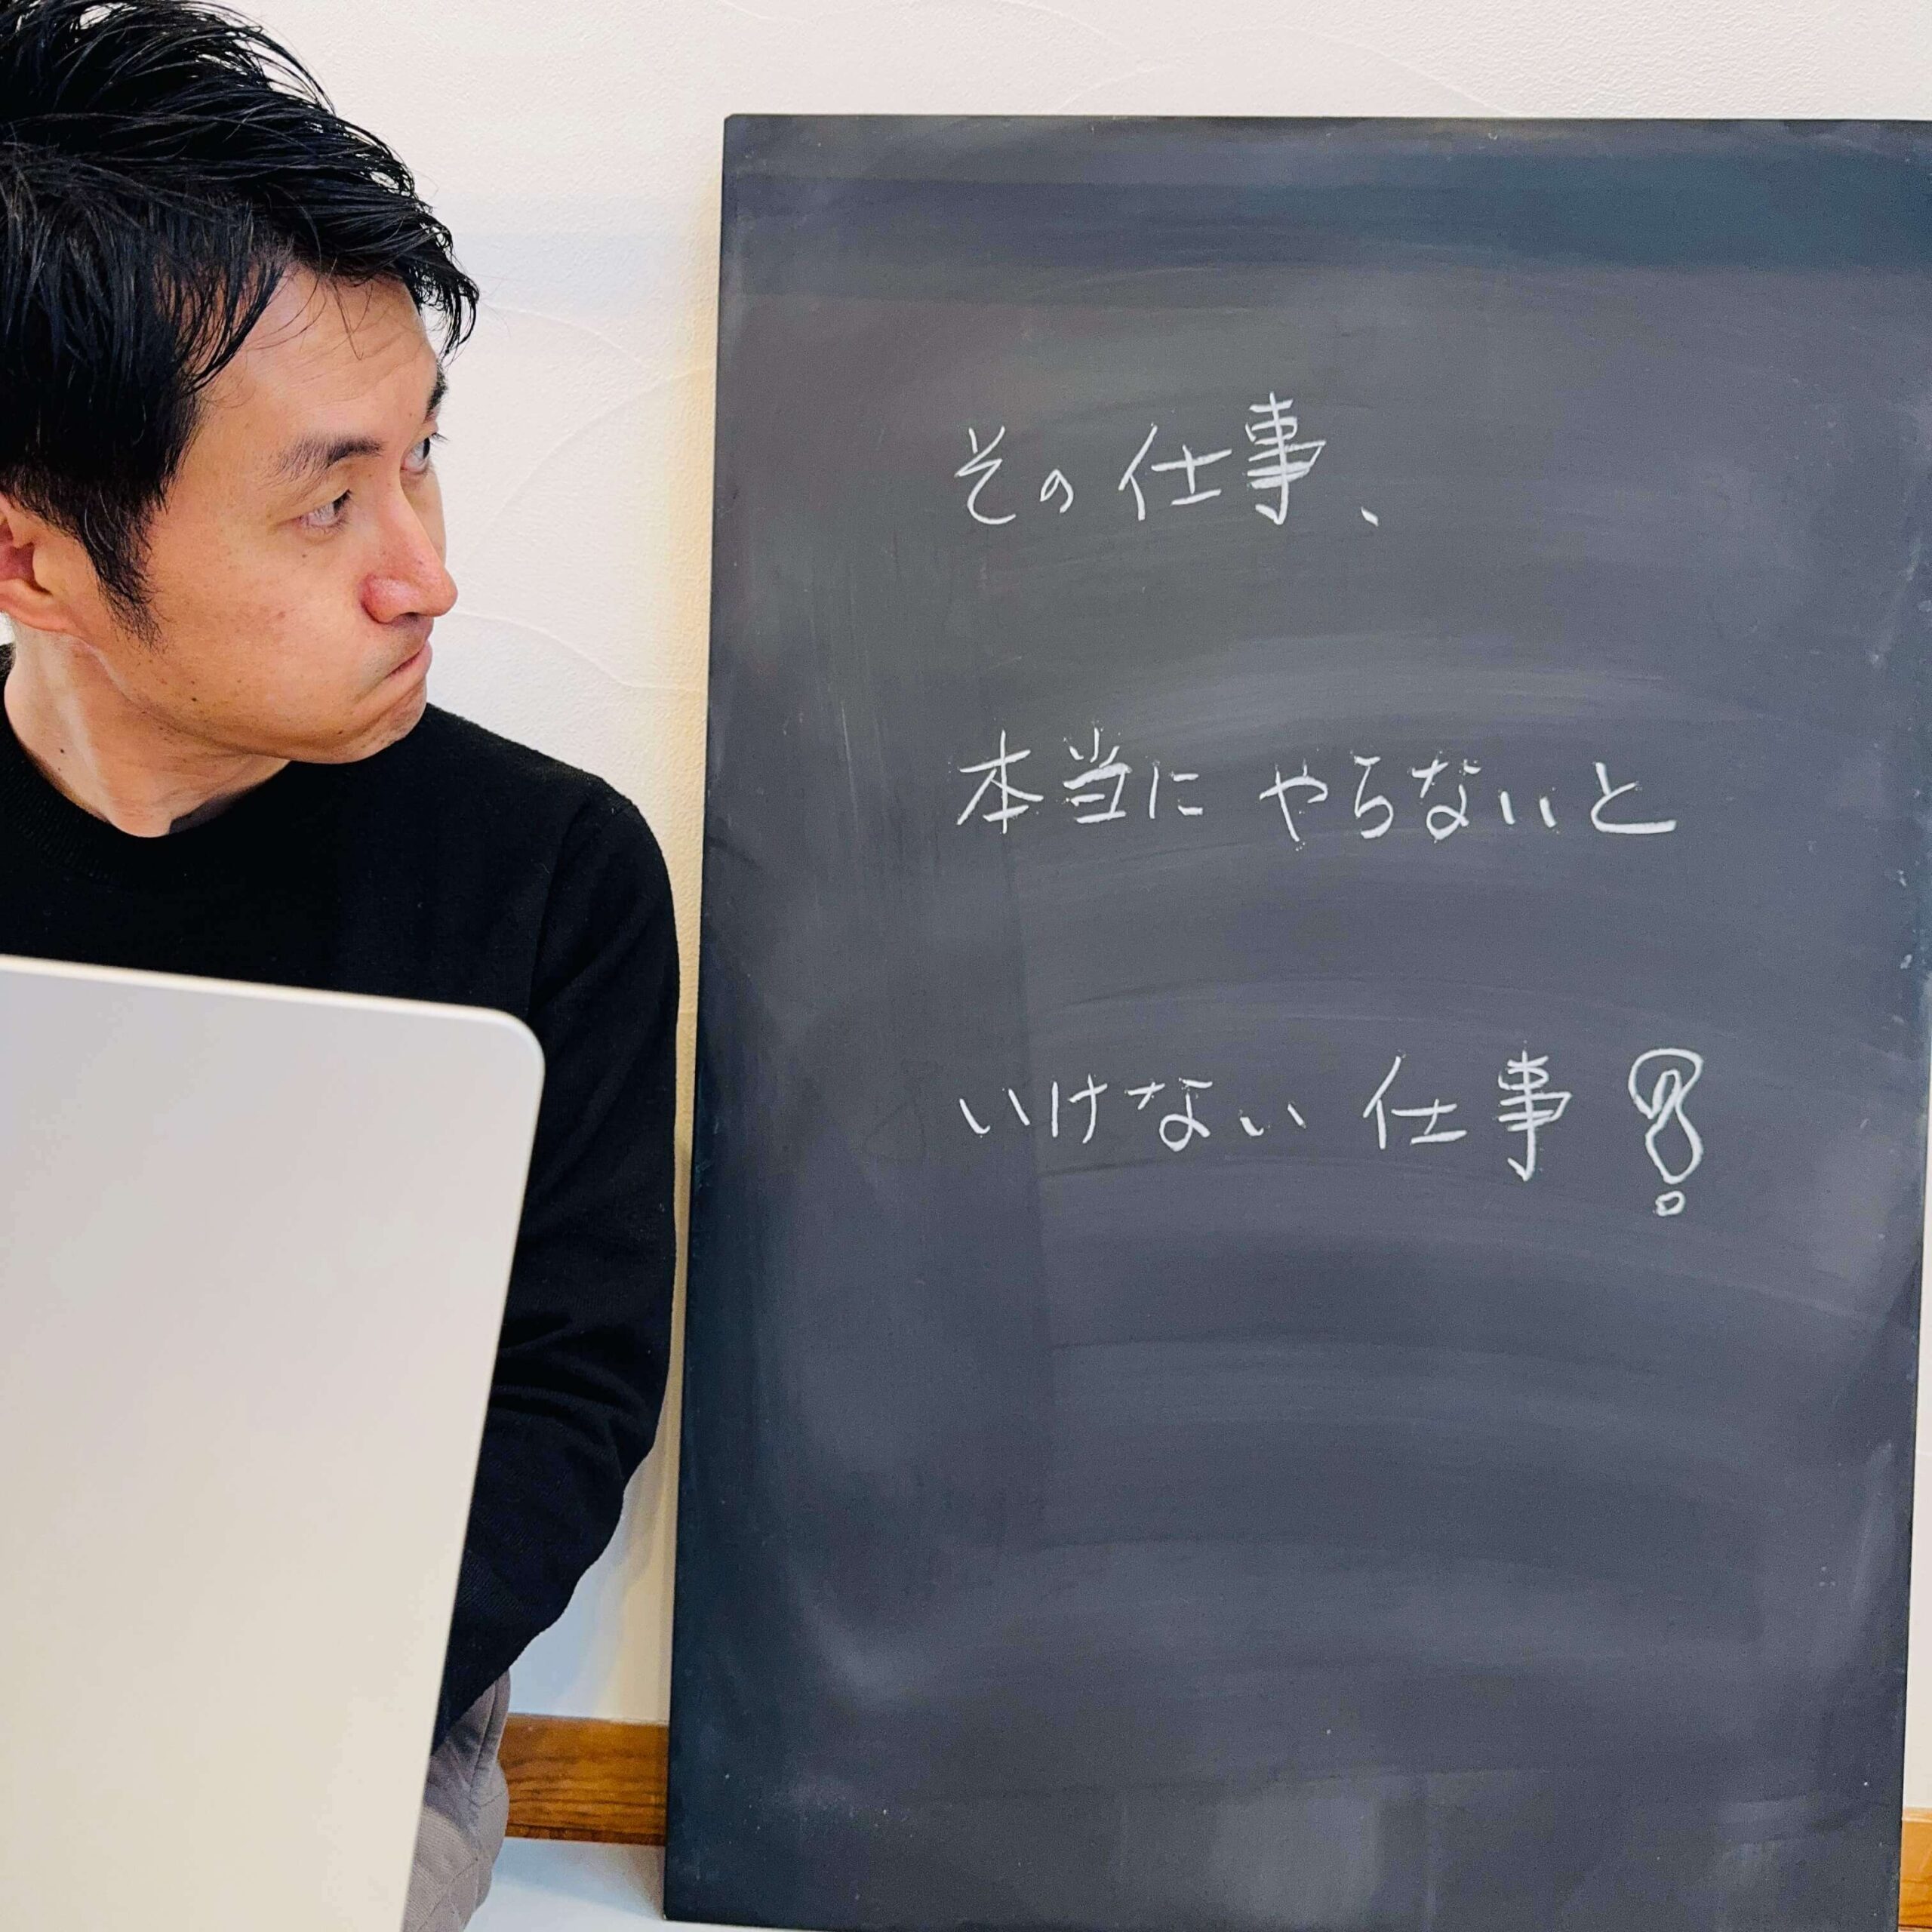 その仕事、
本当にやらないと
いけない仕事?